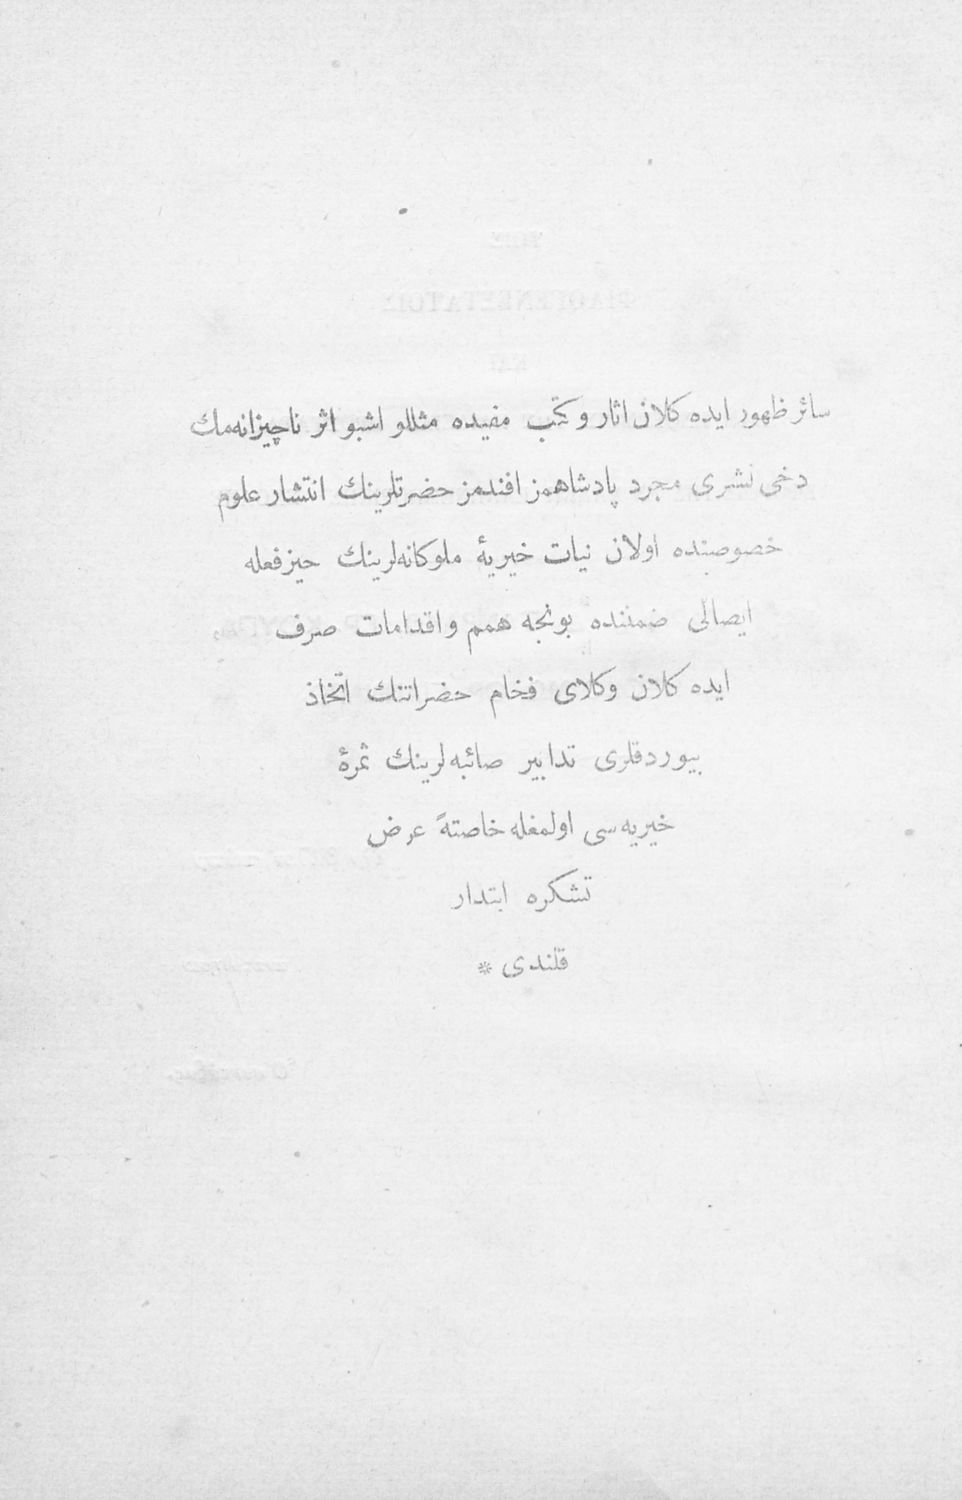 سائر ظهور ایده کلان اثار و کتب مفیده مثللو اشبو اثر ناچیزانه‌مك
دخی نشری مجرد پادشاهمز افندمز حضرتلرینك انتشار علوم
خصوصنده اولان نیات خیریهٔ ملوکانه‌لرینك حیز فعله
ایصالی ضمننده بونجه همم و اقدامات صرف
ایده کلان وکلای فخام حضراتنك اتّخاذ
بیوردقلری تدابیر صائبه‌لرینك ثمرهٔ
خیریه‌سی اولمغله خاصتهً عرض
تشکره ابتدار
قلندی *